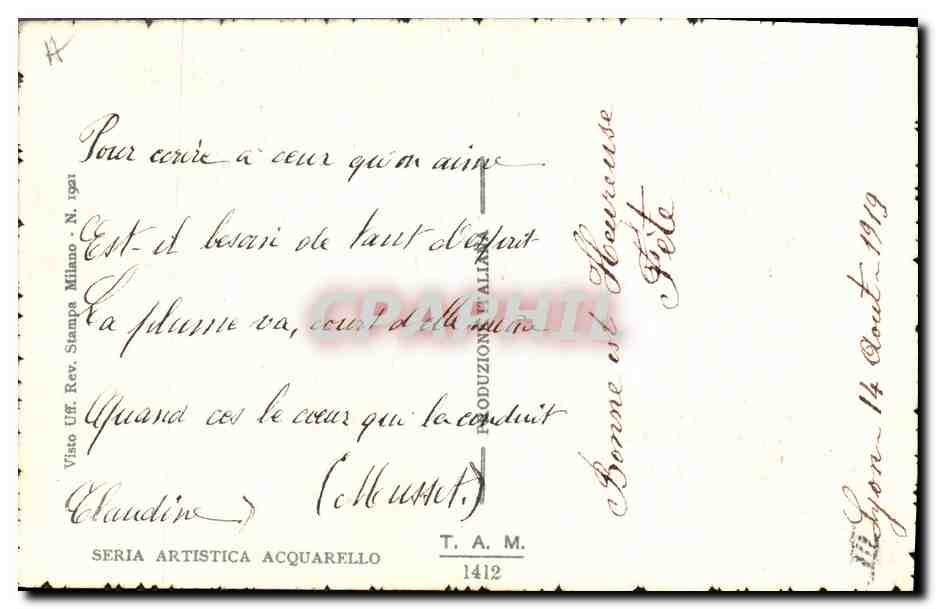 Pour ecrire a ceux qu'on aime
Est-il besoin de tant d'esprit
La plume va, court d'elle même
Quand ces le cœur qui la conduit
(Musset.)
Claudine
Bonne et Heureuse
Fète
Lyon 14 Aout 1919
Visto Uff. Rev. Stampa Milano - N. 1921
PRODUZIONE ITALIANA
SERIA ARTISTICA ACQUARELLO
T. A. M.
1412
CPAPHIL